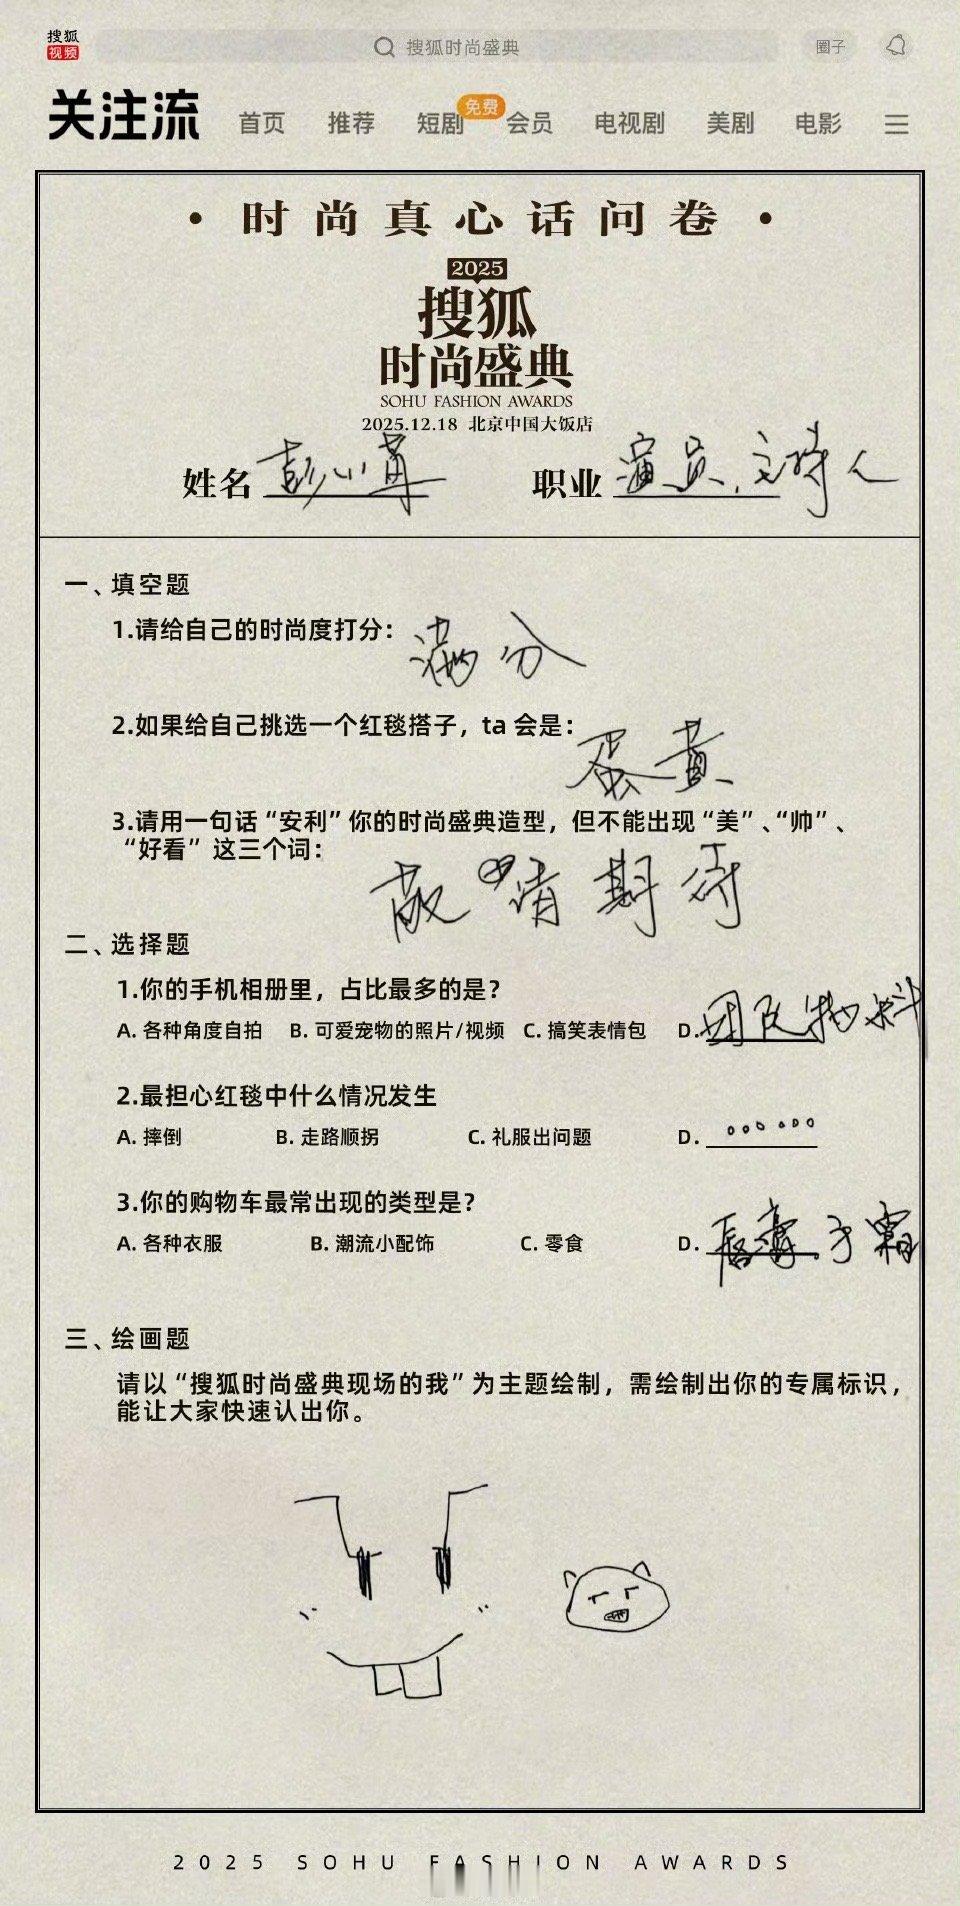 搜狐
视频
搜狐时尚盛典
圈子
关注流
首页 推荐 短剧 免费 会员 电视剧 美剧 电影
·时尚真心话问卷·
2025
搜狐
时尚盛典
SOHU FASHION AWARDS
2025.12.18 北京中国大饭店
姓名 彭小苒 职业 演员.主持人
一、填空题
1.请给自己的时尚度打分：满分
2.如果给自己挑选一个红毯搭子，ta 会是：蛋黄
3.请用一句话“安利”你的时尚盛典造型，但不能出现“美”、“帅”、
“好看” 这三个词：敬请期待
二、选择题
1.你的手机相册里，占比最多的是？
A. 各种角度自拍 B. 可爱宠物的照片/视频 C. 搞笑表情包 D. 团队物料
2.最担心红毯中什么情况发生
A. 摔倒 B. 走路顺拐 C. 礼服出问题 D. 。。。。。。
3.你的购物车最常出现的类型是？
A. 各种衣服 B. 潮流小配饰 C. 零食 D. 唇膏.手霜
三、绘画题
请以“搜狐时尚盛典现场的我”为主题绘制，需绘制出你的专属标识，
能让大家快速认出你。
2025 SOHU FASHION AWARDS